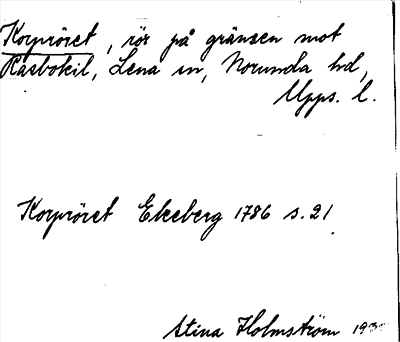 Korpröret, rös på gränsen mot
Rasbokil, Lena sn, Norunda hd,
Upps. l.
Korpröret Ekeberg 1786 s. 21
Stina Holmström